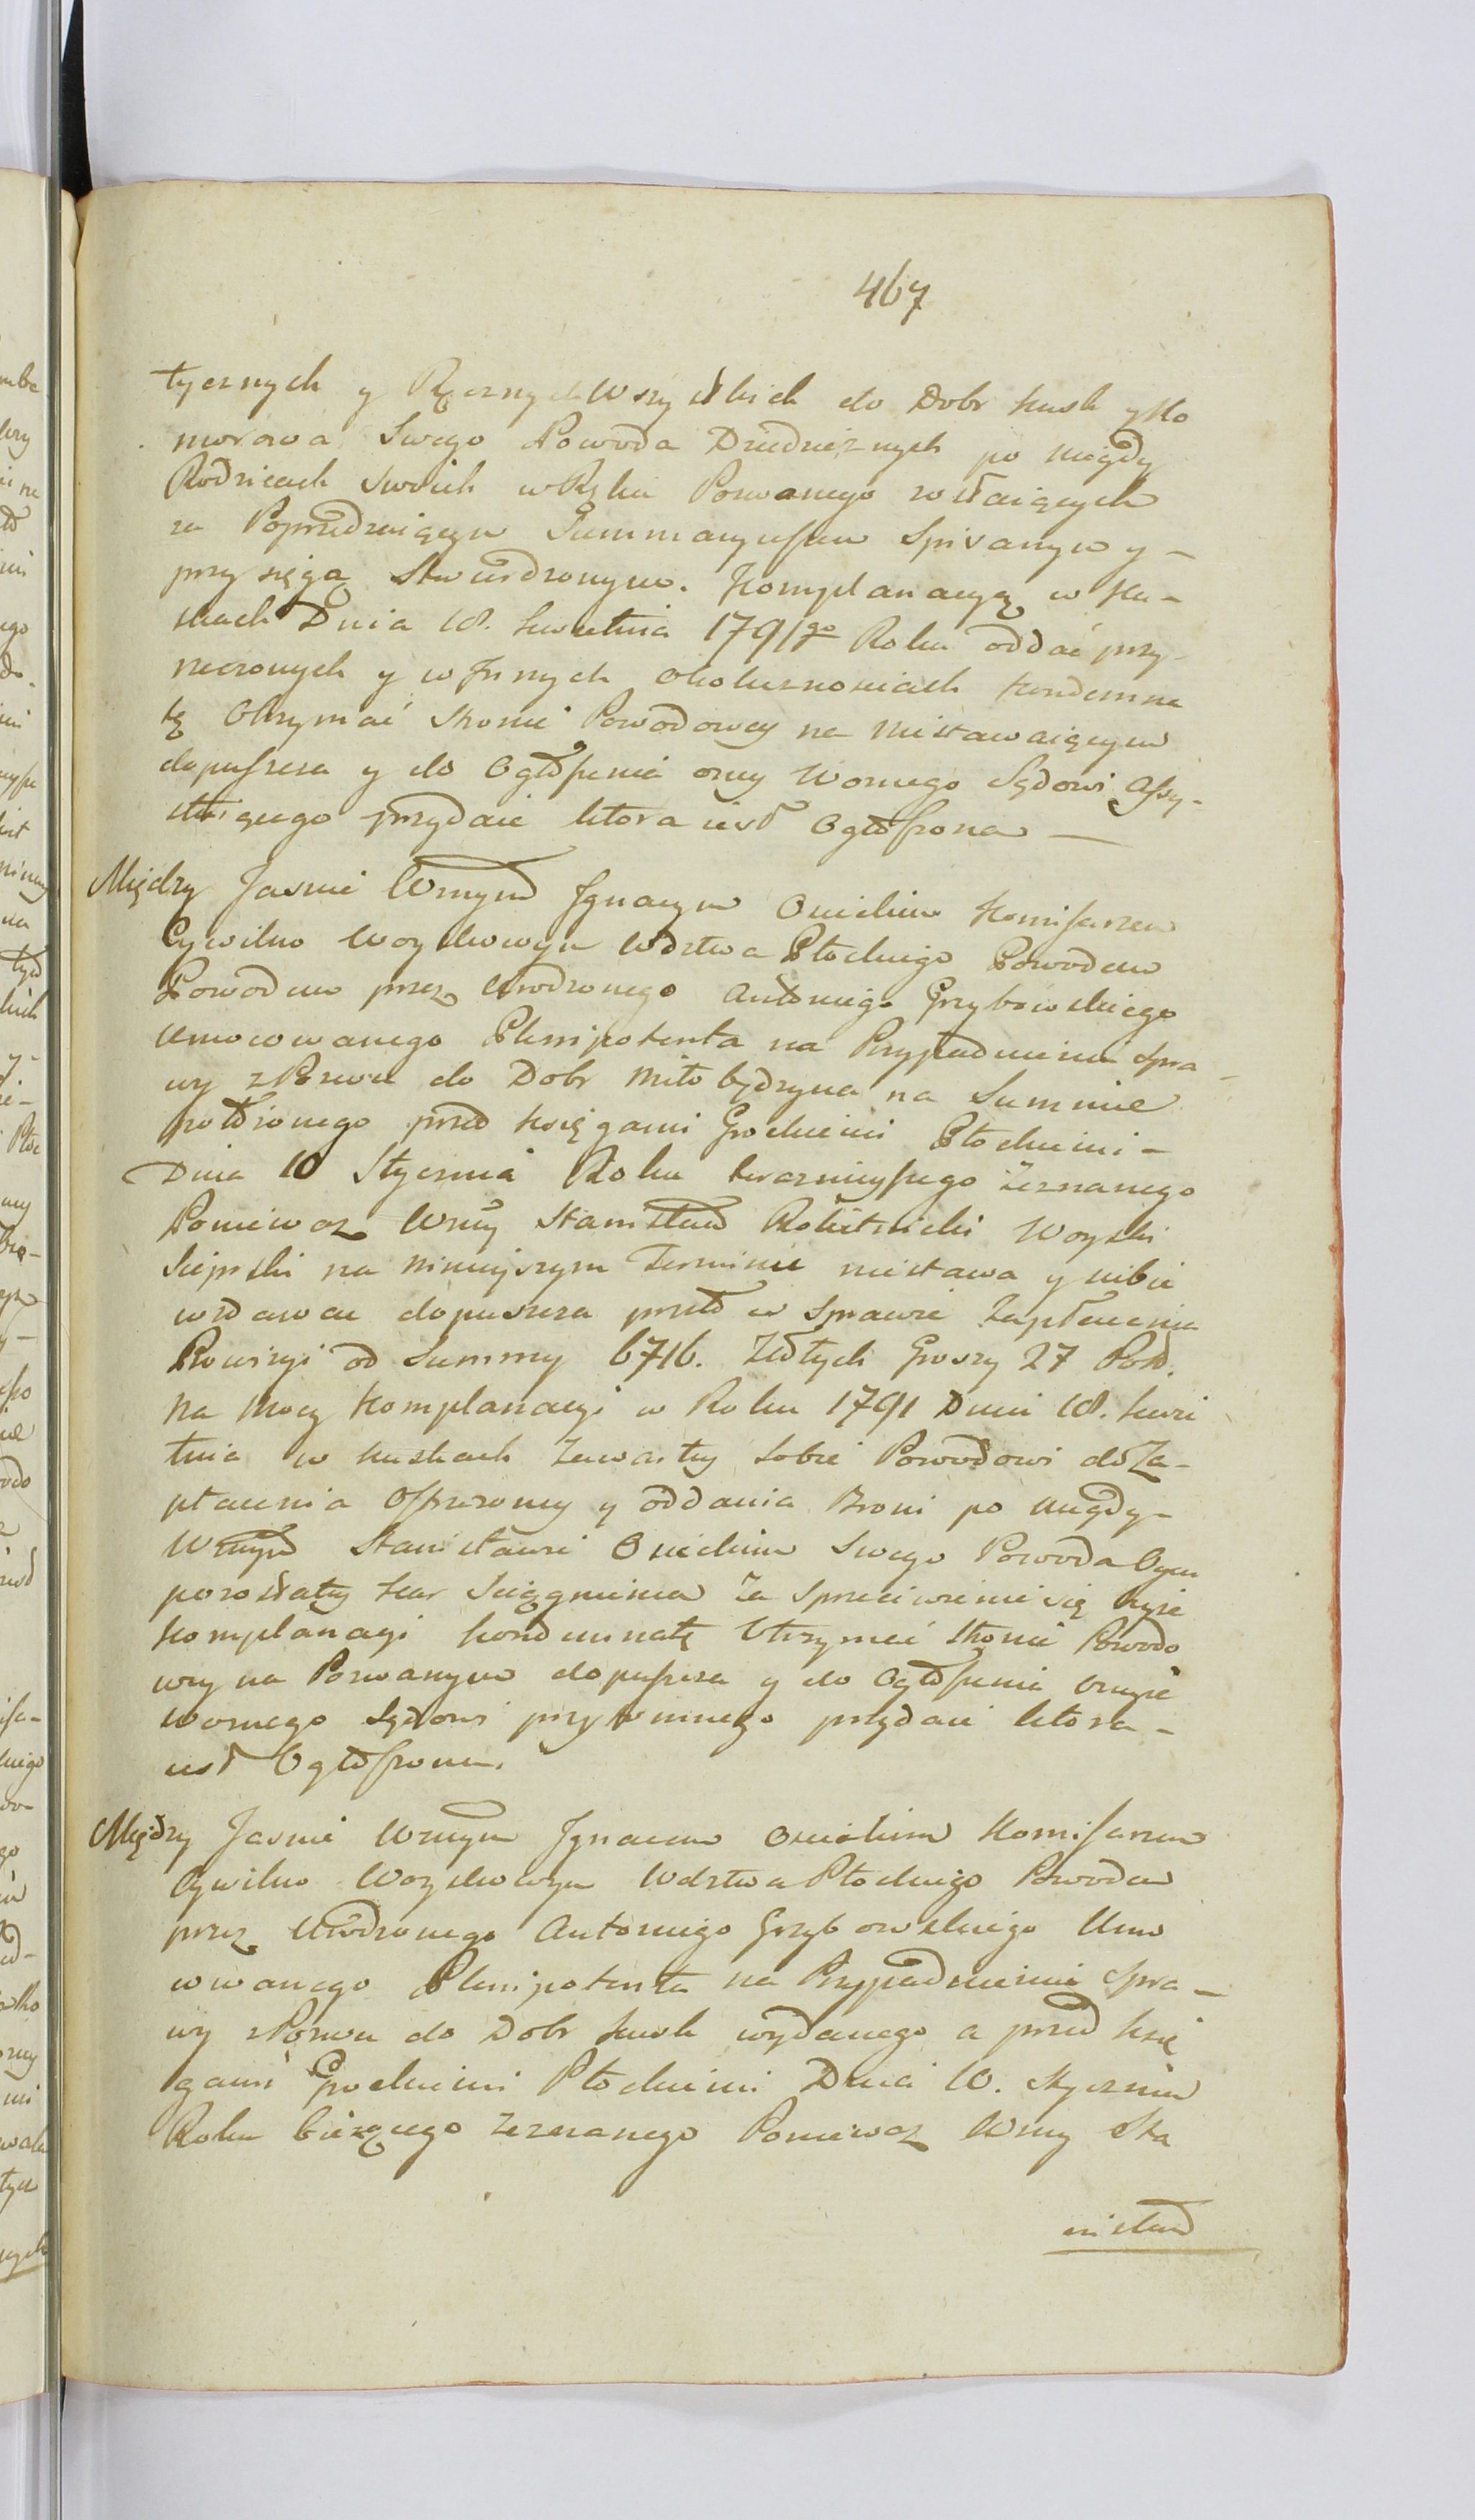 467
tycznych y Ręcznych Wszystkich do Dobr Kusk y Ko
morowa Swego Powoda Dziedzicznych po niegdy
Rodzicach Swoich w Ręku Pozwanego zostaiących
za Poprzedzaiącym Summaryuszem Spisanym y –
przysięgą Stwierdzonym. Komplanacyą w Ku-
skach Dnia 18. Kwietnia 1791go Roku oddać przy-
rzeczonych y w Innych okolicznościach Kondemna
tę Otrzymać Stronie Powodowey na niestawaiącym
dopuszcza y do Ogłoszenia oney Woznego Sądowi Assy-
stuiącego przydaie ktora iest Ogłoszona —
Między Jasnie Wmym Ignacym Oseckim Komisarzem
Cywilno Woyskowym Wdztwa Płockiego Powodem
Powodem przez Urodzonego Antoniego Grzybowskiego
Umocowanego Plenipotenta na Przypadnieniu Spra –
wy z Pozwu do Dobr Miłobędzyna na Summie
położonego przed Księgami Grodzkiemi Płockiemi –
Dnia 10 Stycznia Roku teraznieyszego Zeznanego
Poniewaz Wmy Stanisław Rościszewski Woyski
Sierpski na ninieyszym Terminie niestawa y siebie
wzdawać dopuszcza przeto w Sprawie Zapłacenia
Prowizyi od Summy 6716. Złotych Groszy 27 Pols.
Na Mocy Komplanacyi w Roku 1791 Dnia 18. Kwie
tnia w Kuskach Zawartey Sobie Powodowi do Za-
płacenia Ofiarowaney y oddania Broni po niegdy-
Wmym Stanisławie Oseckim Swego Powoda Oycu
pozostałey Kar Sciągnienia Za Sprzeciwienie się teyże
Komplanacyi Kondemnatę Otrzymać Stronie Powodo
wey na Pozwanym dopuszcza y do Ogłoszenia oneyże
Woznego Sądowi przytomnego przydaie ktora –
iest Ogłoszona.
Między Jasnie Wmym Ignacem Oseckim Komisarzem
Cywilno Woyskowym Wdztwa Płockiego Powodem
przez Urodzonego Antoniego Grzybowskiego Umo
cowanego Plenipotenta na Przypadnieniu Spra –
wy z Pozwu do Dobr Kusk wydanego a przed Księ
gami Grodzkiemi Płockiemi Dnia 10. Stycznia
Roku bieżącego Zeznanego Poniewaz Wmy Sta
nisław